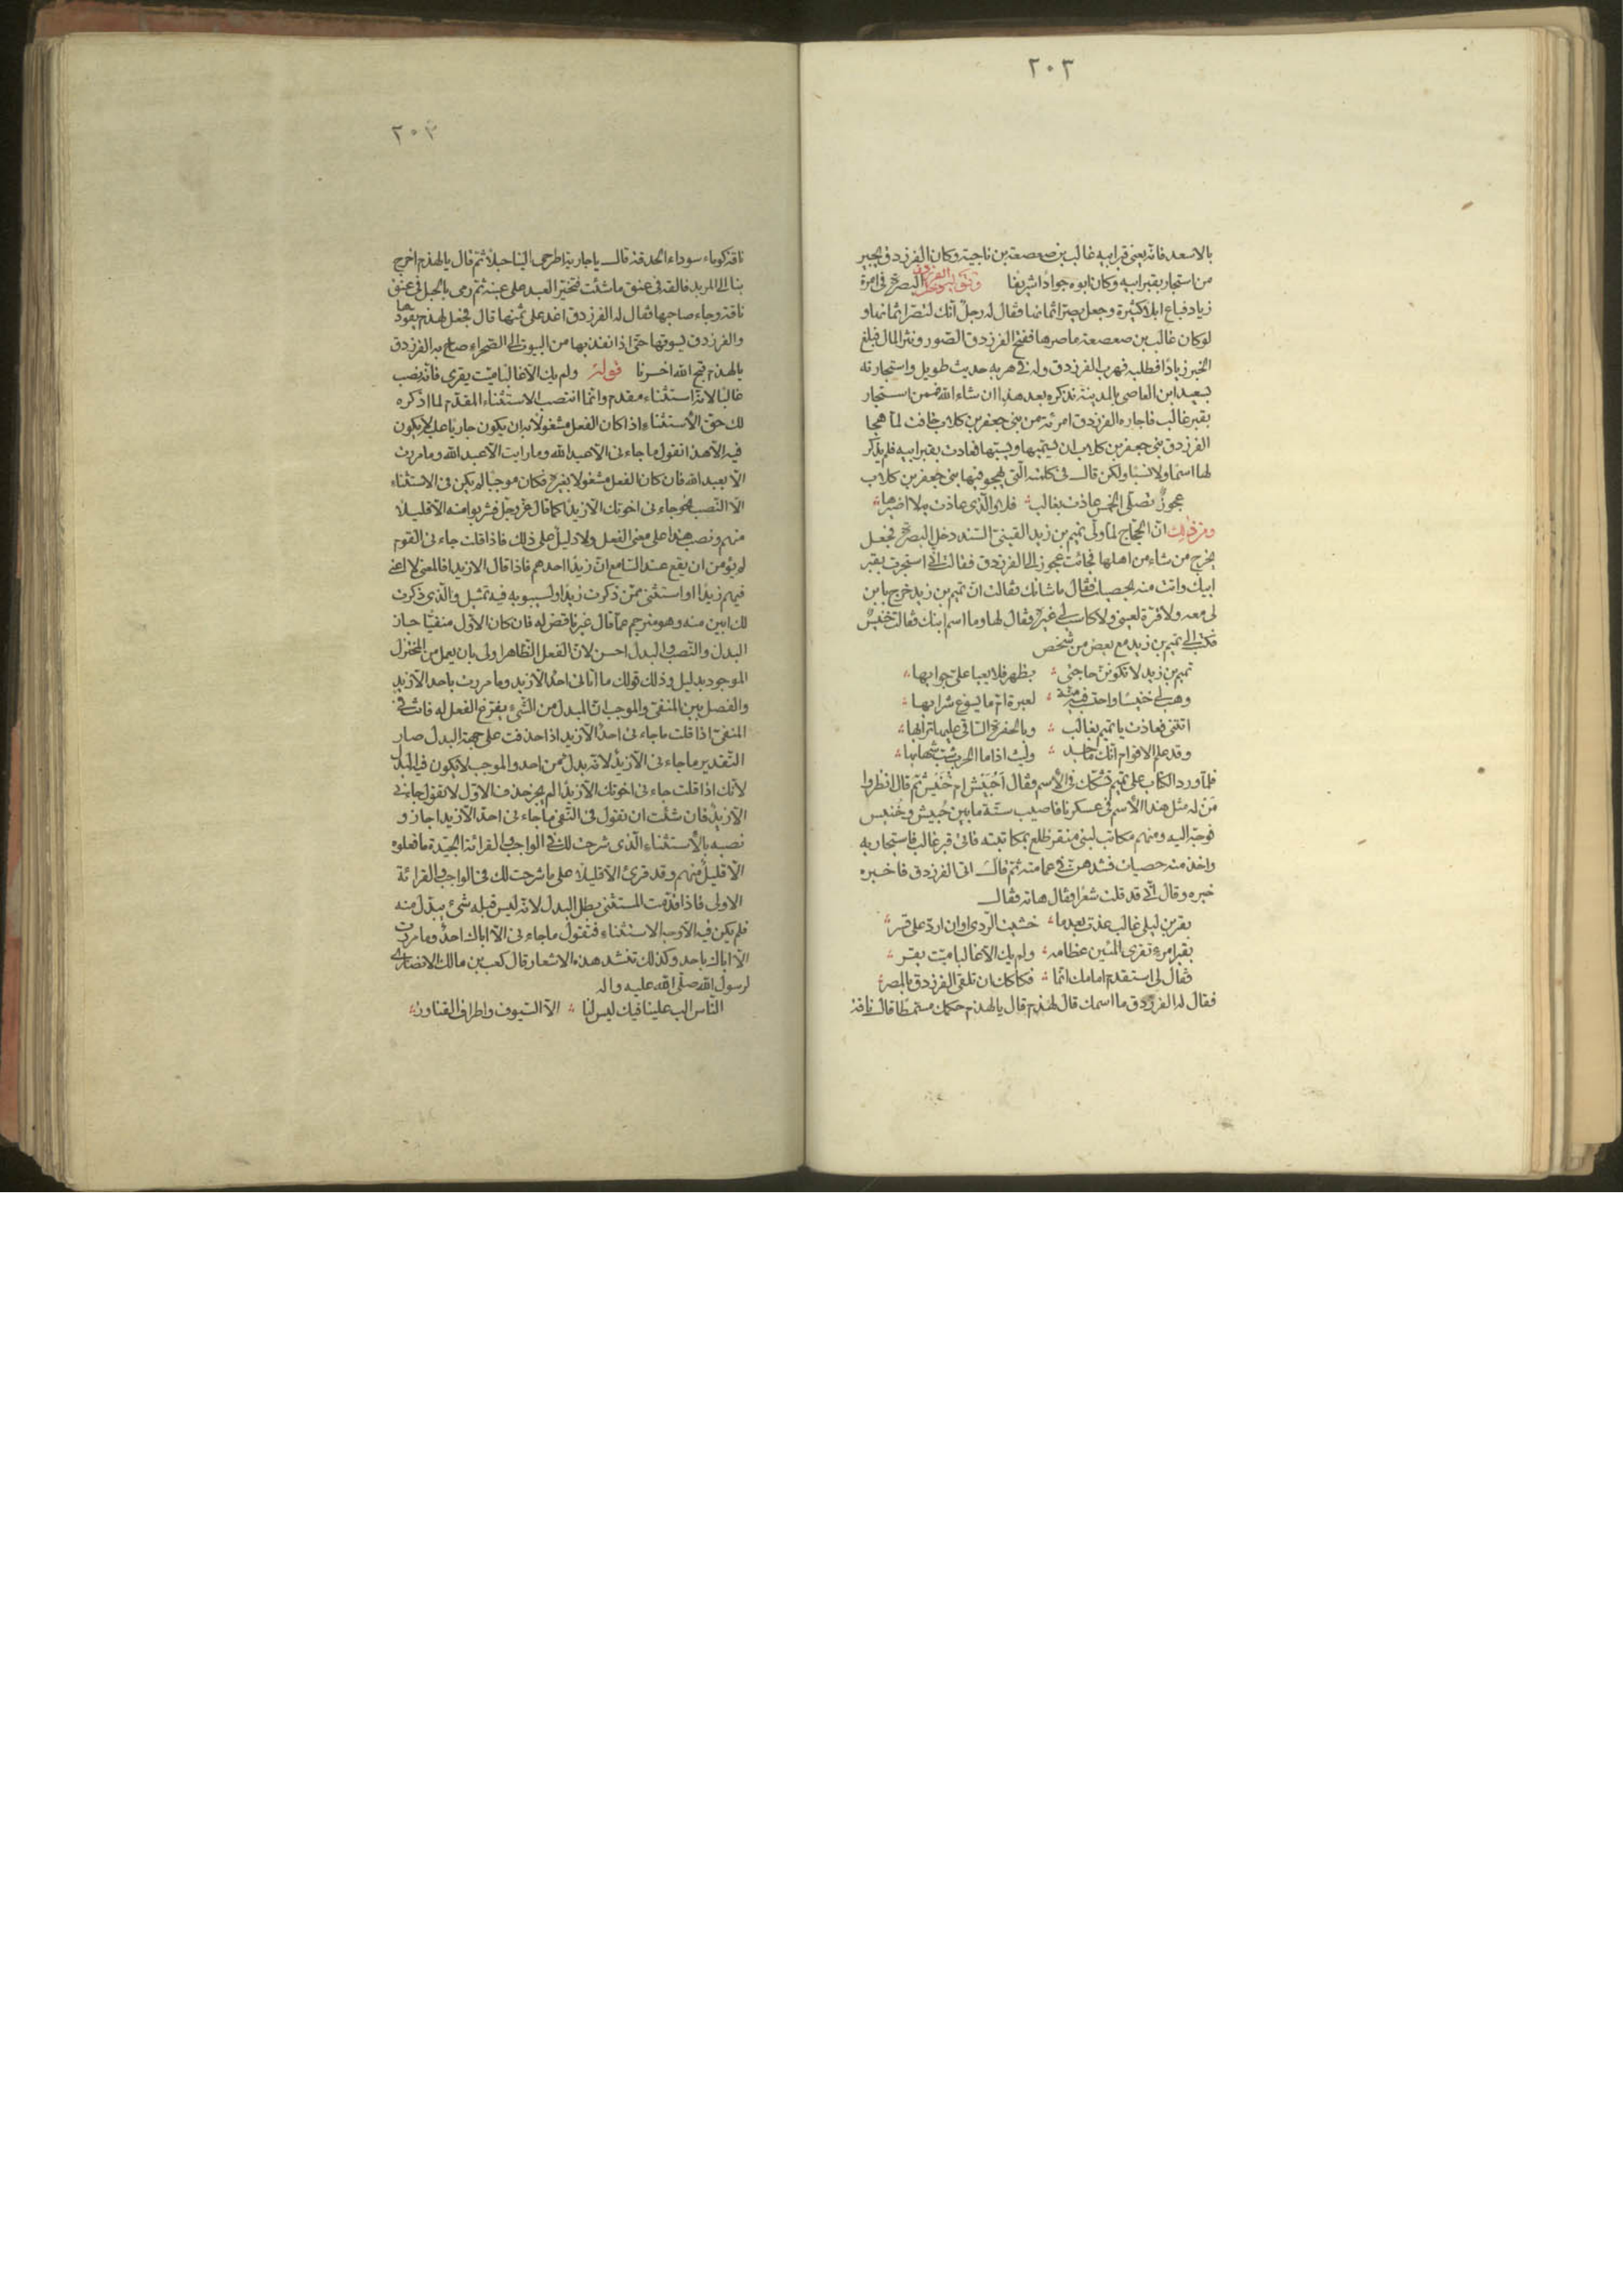 ٢٠٣
بالاسعد فانه يعنى قبر ابيه غالب بن صعصعة بن ناجية وكان الفرزدق يجير
من استجار بقبر ابيه وكان ابوه جوادا شريفا ودخل الفرزدق البصرة فى امرة
زياد فباع ابلا كثيرة وجعل يصر اثمانها فقال له رجل انك لتصر اثمانها و
لو كان غالب بن صعصعة ما صرها ففتح الفرزدق الصرر ونثر المال فبلغ
الخبر زيادا فطلبه فهرب الفرزدق وله فى هربه حديث طويل واستجارته
بسعيد ابن العاصى بالمدينة نذكره بعد هذا ان شاء الله فمن استجار
بقبر غالب فاجاره الفرزدق امرئة من بنى جعفر بن كلاب خافت لما هجا
الفرزدق بنى جعفر بن كلاب ان يسميها ويسبها فعاذت بقبر ابيه فلم يذكر
لها اسما ولا نسبا ولكن قال فى كلمته الّتى يهجو فيها بنى جعفر بن كلاب
عجوز تصلى الخمس عاذت بغالب ؞ فلا والّذى عاذت به لا اضيرها ؞
ومن ذلك ان الحجاج لما ولى تميم بن زيد القينى السند دخل البصرة فجعل
يخرج من شاء من اهلها فجائت عجوز الى الفرزدق فقالت انى استجرت بقبر
ابيك واتت منه بحصيات فقال ما شانك فقالت انّ تميم بن زيد خرج بابن
لى معه ولا قرة لعينى ولا كاسب لى غيره فقال لها وما اسم ابنك فقالت خنيس
فكتب الى تميم بن زيد مع بعض من شخص
تميم بن زيد لا تكوننّ حاجتى ؞ بظهر فلا يعيا علىّ جوابها ؞
وهب لى خنيسا واحتسب فيه منّة ؞ لعبرة امّ ما يسوغ شرابها ؞
اتتنى فعاذت يا تميم بغالب ؞ وبالحفرة السافى عليها ترابها ؞
وقد علم الاقوام انّك ماجد ؞ وليث اذا ما الحرب شب شهابها ؞
فلمّا ورد الكتاب على تميم تشكّك فى الأسم فقال اَحُبَيش ام خُنَيس ثم قال انظروا
مَن له مثل هذا الأسم فى عسكرنا فاصيب ستّة ما بين حُبيش وخُنيس
فوجّه اليه ومنهم مكاتب لبنى منقر ظلع بمكاتبته فاتى قبر غالب فاستجار به
واخذ منه حصيات فشدهنّ فى عمامته ثمّ قال اتى الفرزدق فاخبره
خبره وقال انّى قد قلت شعرا فقال هاته فقال
بقبر بن ليلى غالب عذت بعدما ؞ خشيت الرّدى او ان اردّ على قسر ؞
بقبر امرء تقرى المئين عظامه ؞ ولم يك الّا غالبا ميّت يقرى ؞
فقال لى استقدم امامك انّما ؞ فكاكك ان تلقى الفرزدق بالمصر ؞
فقال له الفرزدق ما اسمك قال لهذم قال يا لهذم حكمك مسمّطا قال ناقة
٢٠٣
ناقة كوماء سوداء الحدقة قال يا جارية اطرحى الينا حبلا ثمّ قال يا لهذم اخرج
بنا الى المربد فالقه فى عنق ما شئت فتخيّر العبد على عينه ثمّ رمى بالحبل فى عنق
ناقة وجاء صاحبها فقال له الفرزدق اغد على ثمنها قال فجعل لهذم يقودها
والفرزدق يسوقها حتّى اذا نفذ بها من البيوت الى الصحراء صاح به الفرزدق
يا لهذم قبح الله اخسرنا قوله ولم يك الّا غالبا ميّت يقرى فانّه نصب
غالبا لانّه استثناء مقدم وانّما انتصب الاستثناء المقدّم لما اذكره
لك حق الأستثناء اذا كان الفعل مشغولا به ان يكون جاريا عليه لا يكون
فيه الّا هذا تقول ما جاءنى الّا عبد الله وما رايت الّا عبد الله وما مررت
الّا بعبد الله فان كان الفعل مشغولا بغيره فكان موجبا لم يكن فى الاستثناء
الّا النّصب نحو جاءنى اخوتك الّا زيدا كما قال عزّ وجلّ فشربوا منه الّا قليلا
منهم ونصب هذا على معنى الفعل والّا دليل على ذلك فاذا قلت جاءنى القوم
لم يؤمن ان يقع عند السّامع انّ زيدا احدهم فاذا قال الّا زيدا فالمعنى لا اعنى
فيهم زيدا او استثنى ممّن ذكرت زيدا ولسيبويه فيه تمثيل والّذى ذكرت
لك ابين منه وهو مترجم عمّا قال غير ناقض له فان كان الاوّل منفيّا جاز
البدل والنّصب والبدل احسن لانّ الفعل الظّاهر اولى بان يعمل من المختزل
الموجود بدليل وذلك قولك ما اتانى احد الّا زيد وما مررت باحد الّا زيد
والفصل بين المنفىّ والموجب انّ المبدل من الشّىء يفرّغ الفعل له فانت فى
المنفىّ اذا قلت ما جاءنى احد الّا زيد اذا حذفت على جهة البدل صار
التّقدير ما جاءنى الّا زيد لانّه بدل من احد والموجب لا يكون فيه البدل
لانّك اذا قلت جاءنى اخوتك الّا زيدا لم يجز حذف الاوّل لا تقول جاءنى
الّا زيد فان شئت ان تقول فى النّفى ما جاءنى احد الّا زيدا جاز و
نصبه بالأستثناء الّذى شرحت لك فى الواجب والقرائة الجيّدة ما فعلوه
الّا قليل منهم وقد قرئ الّا قليلا على ما شرحت لك فى الواجب والقرائة
الاولى فاذا قدّمت المستثنى بطل البدل لانّه ليس قبله شىء يبدّل منه
فلم يكن فيه الّا وجه الاستثناء فتقول ما جاءنى الّا اباك احد وما مررت
الّا اباك باحد وكذلك تنشد هذه الاشعار قال كعب بن مالك الانصارى
لرسول الله صلّى الله عليه واله
النّاس الب علينا فيك ليس لنا ؞ الّا السّيوف واطراف القنا وزر ؞